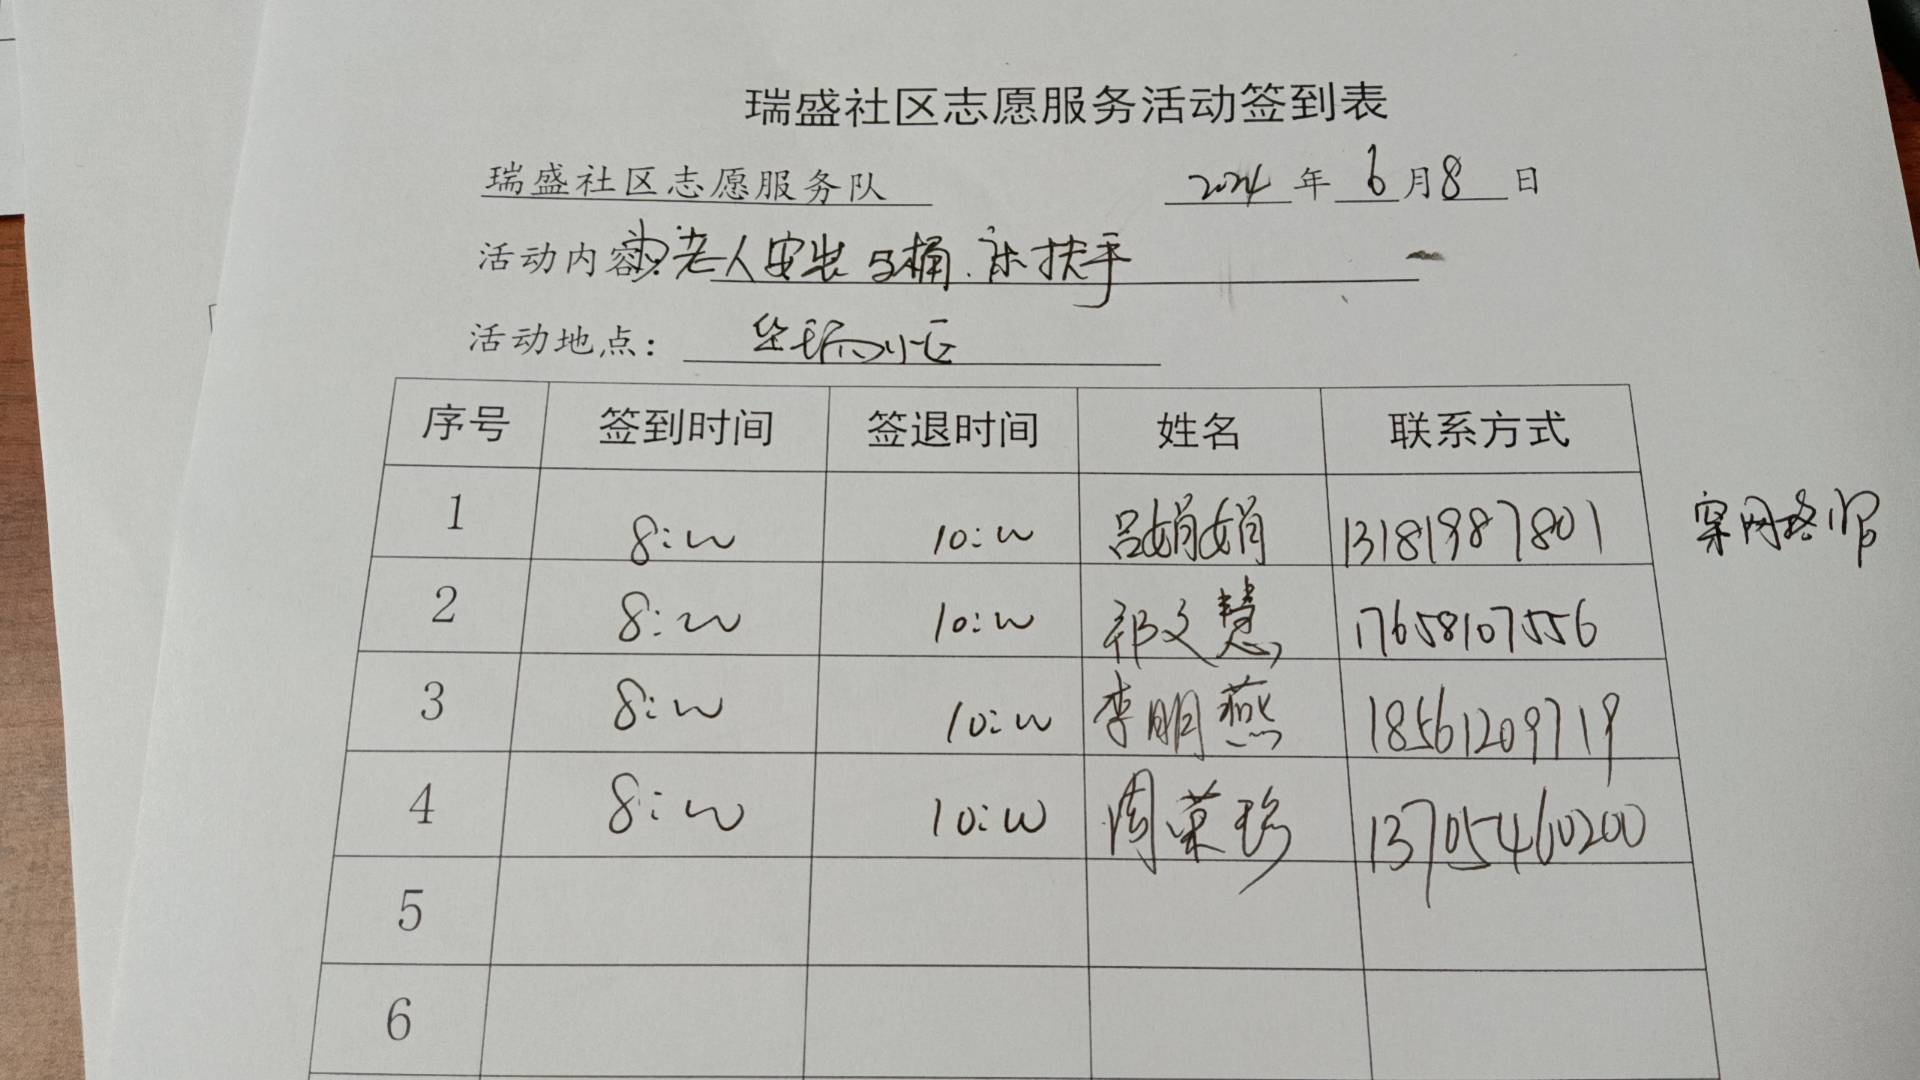 瑞盛社区志愿服务活动签到表
瑞盛社区志愿服务队 2024 年 6 月 8 日
活动内容: 为老人安装马桶、床扶手
活动地点: 小区
序号 签到时间 签退时间 姓名 联系方式
1 8:00 10:00 吕娟娟 13181987801
2 8:00 10:00 祁文慧 17658107556
3 8:00 10:00 李明燕 18561209719
4 8:00 10:00 周荣珍 13705460200
5
6